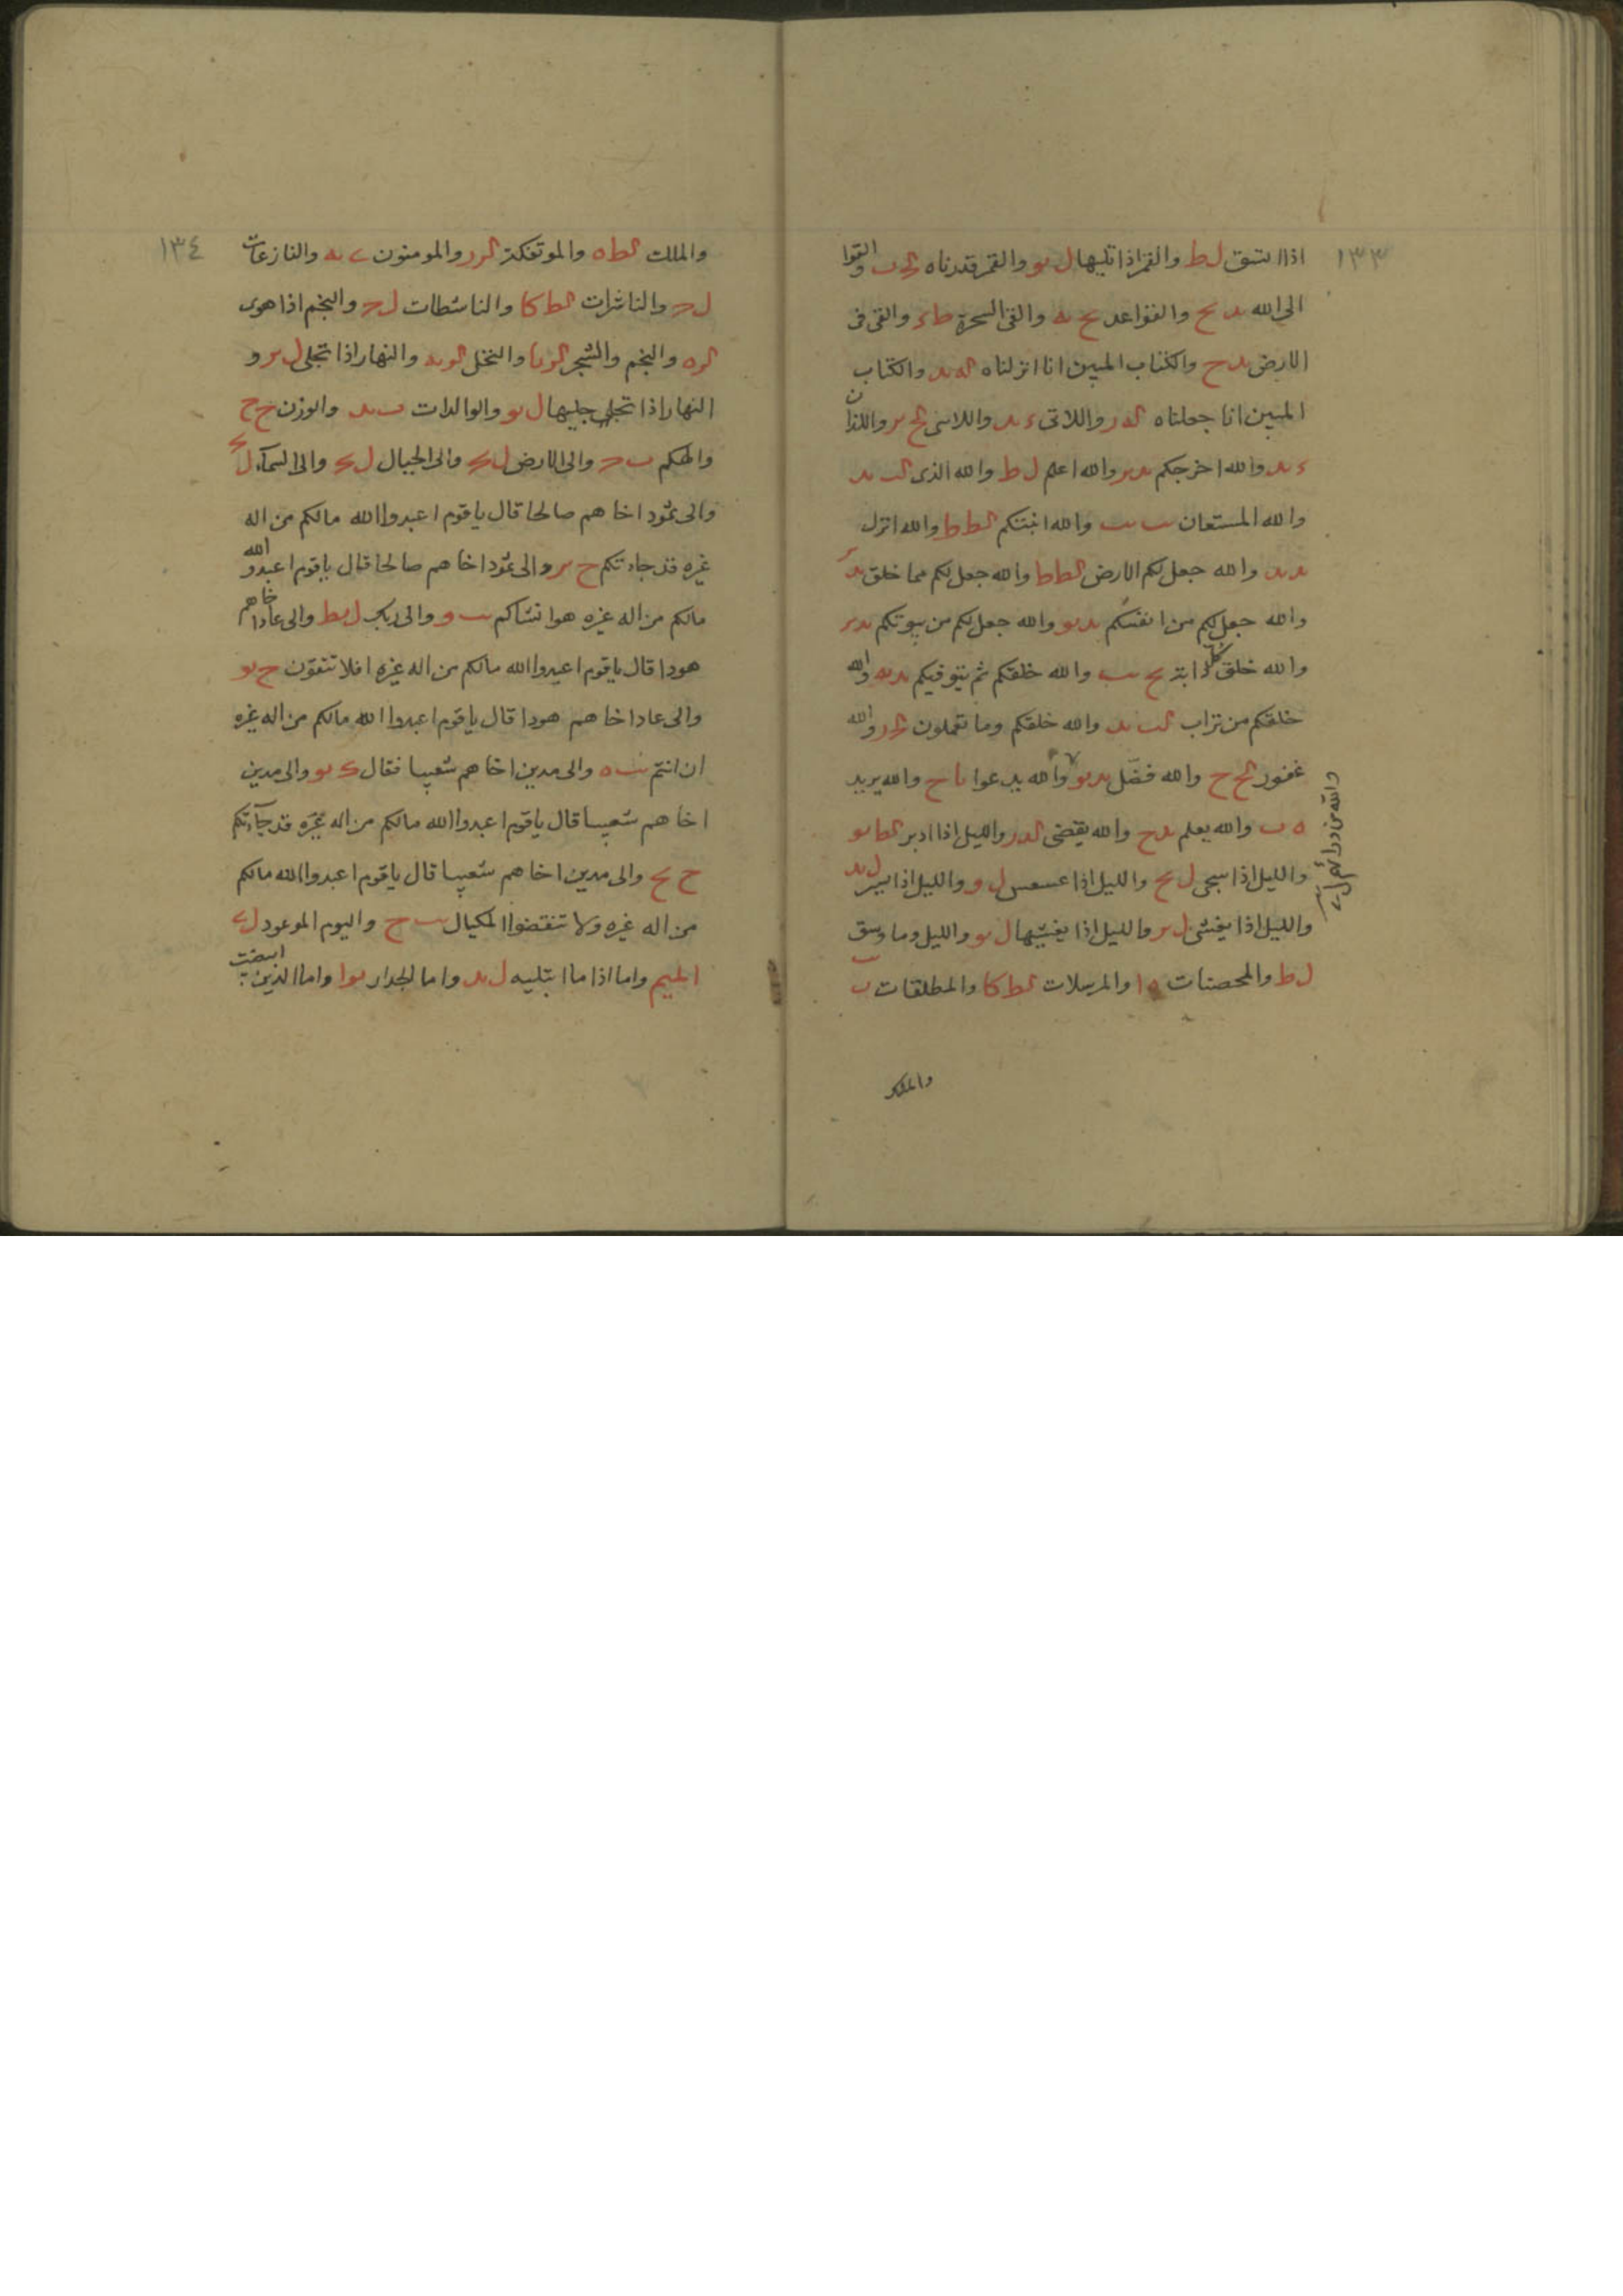 ١٣٣
اذا اتسق ل ط والقمر اذا تليها ل يو والقمر قدرناه والقوا
الى الله يد يح والقواعد يح يه والقى السحرة ط ء والقى فى
الارض يد ح والكتاب المبين انا انزلناه له يد والكتاب
المبين انا جعلناه له ر واللاتى ء يد واللائى لح ير واللذان
ء يد والله اخرجكم يد ير والله اعلم ل ط والله الذى لب يد
والله المستعان يب يب والله انبتكم لط ط والله انزل
يد يد والله جعل لكم الارض لط ط والله جعل لكم مما خلق يد
والله جعل لكم من انفسكم يد يو والله جعل لكم من بيوتكم يد ير
والله خلق كل دابة يح يب والله خلقكم ثم يتوفيكم يد يه والله
خلقكم من تراب لب يد والله خلقكم وما تعملون والله
غفور لح ح والله فضل يد يو والله يدعوا يا ح والله يريد
ه ب والله يعلم يد ح والله يقضى لد ر والليل اذا ادبر لط يو
والليل اذا سجى ل يح والليل اذا عسعس ل و والليل اذا يسر ل يد
والليل اذا يغشى ل ير والليل اذا يغشيها ل يو والليل وما وسق
ل ط والمحصنات ه ا والمرسلات لط كا والمطلقات ب
والله من ورائهم ل
والملك
١٣٤
والملك لط ه والموتفكة لر ر والمومنون ى يه والنازعات
ل ح والناشرات لط كا والناشطات ل ح والنجم اذا هوى
لر ه والنجم والشجر لر يا والنخل لو يه والنهار اذا تجلى ل ير و
النهار اذا جليها ل يو والوالدات ب يد والوزن ح ح
والهكم ب ح والى الارض ل يح والى الجبال ل يح والى السماء ل يح
والى ثمود اخاهم صالحا قال ياقوم اعبدوا الله مالكم من اله
غيره قد جاءتكم ح ير والى ثمود اخاهم صالحا قال ياقوم اعبدوا الله
مالكم من اله غيره هو انشاكم يب و والى ربك ل يط والى عاد اخاهم
هودا قال ياقوم اعبدوا الله مالكم من اله غيره افلا تتقون ح يو
والى عاد اخاهم هودا قال ياقوم اعبدوا الله مالكم من اله غيره
ان انتم يب ه والى مدين اخاهم شعيبا فقال ك يو والى مدين
اخاهم شعيبا قال ياقوم اعبدوا الله مالكم من اله غيره قد جآءتكم
ح يح والى مدين اخاهم شعيبا قال ياقوم اعبدوا الله مالكم
من اله غيره ولا تنقصوا المكيال يب ح واليوم الموعود ل ى
الميم واما اذا ما ابتليه ل يد واما الجدار يو ا واما الذين ابيضت